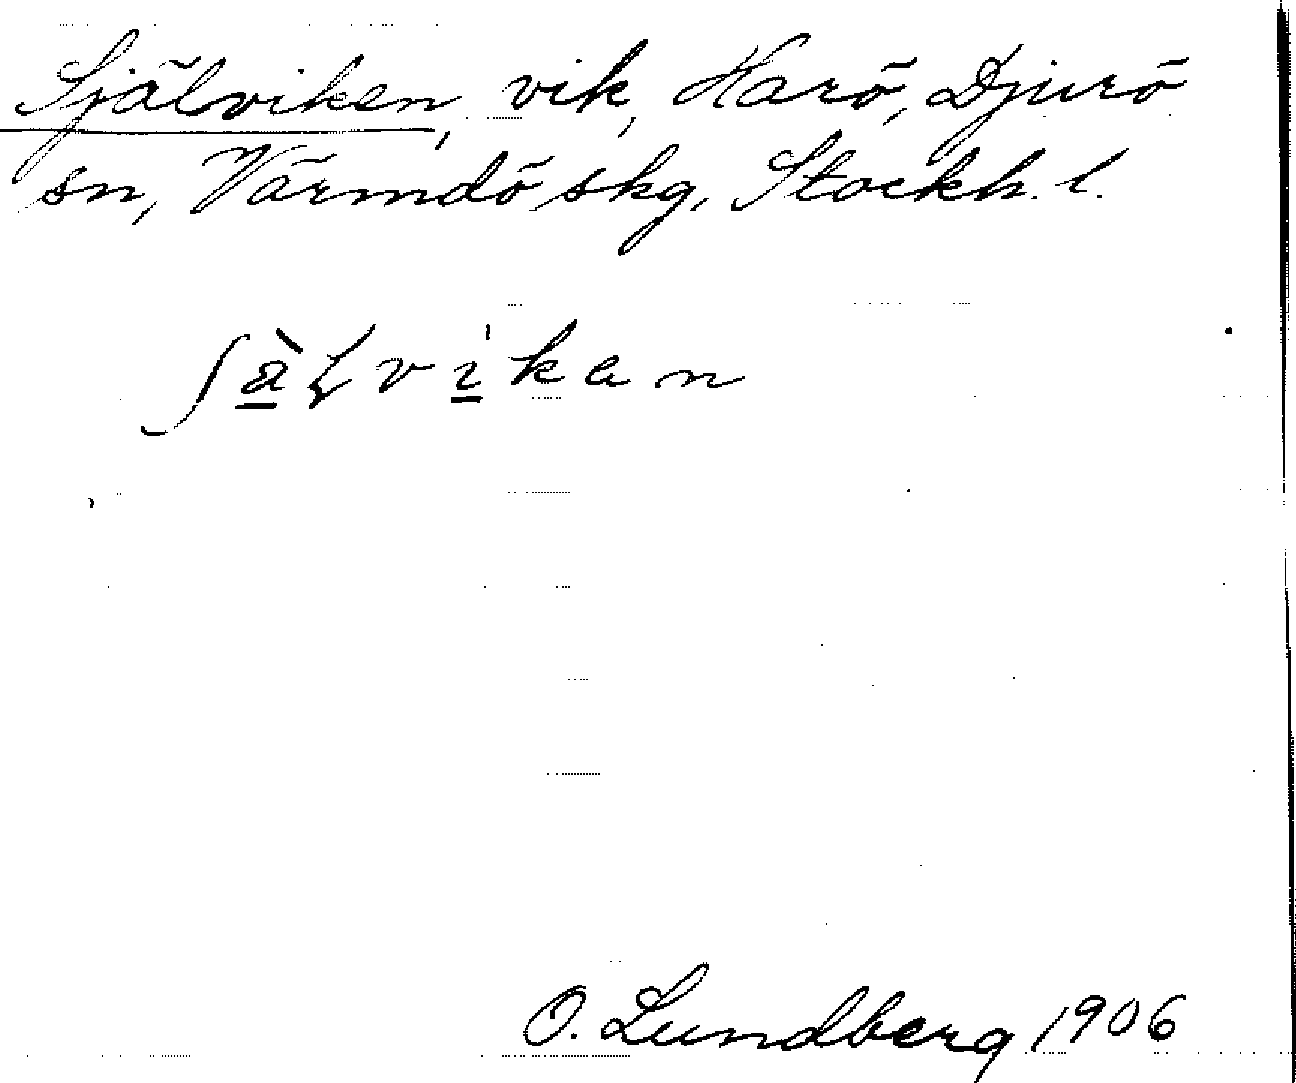 Själviken, vik, Harö, Djurö
sn, Värmdö skg, Stockh. l.
O. Lundberg 1906